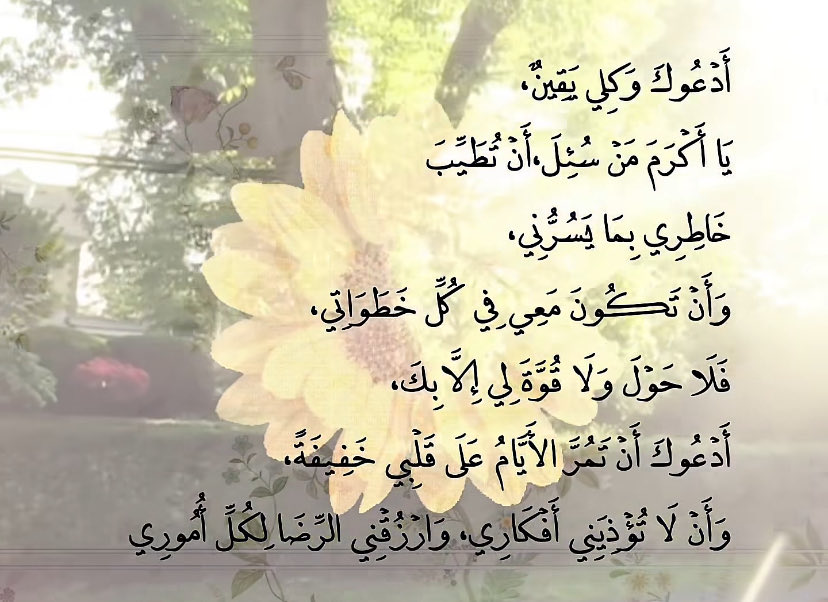 أَدْعُوكَ وَكِلِي يَقِينٌ،
يَا أَكْرَمَ مَنْ سُئِلَ،أَنْ تُطَيِّبَ
خَاطِرِي بِمَا يَسُرُّنِي،
وَأَنْ تَكُونَ مَعِي فِي كُلِّ خَطَوَاتِي،
فَلَا حَوْلَ وَلَا قُوَّةَ لِي إِلَّا بِكَ،
أَدْعُوكَ أَنْ تَمُرَّ الأَيَّامُ عَلَى قَلْبِي خَفِيفَةً،
وَأَنْ لَا تُؤْذِيَنِي أَفْكَارِي، وَارْزُقْنِي الرِّضَا لِكُلِّ أُمُورِي